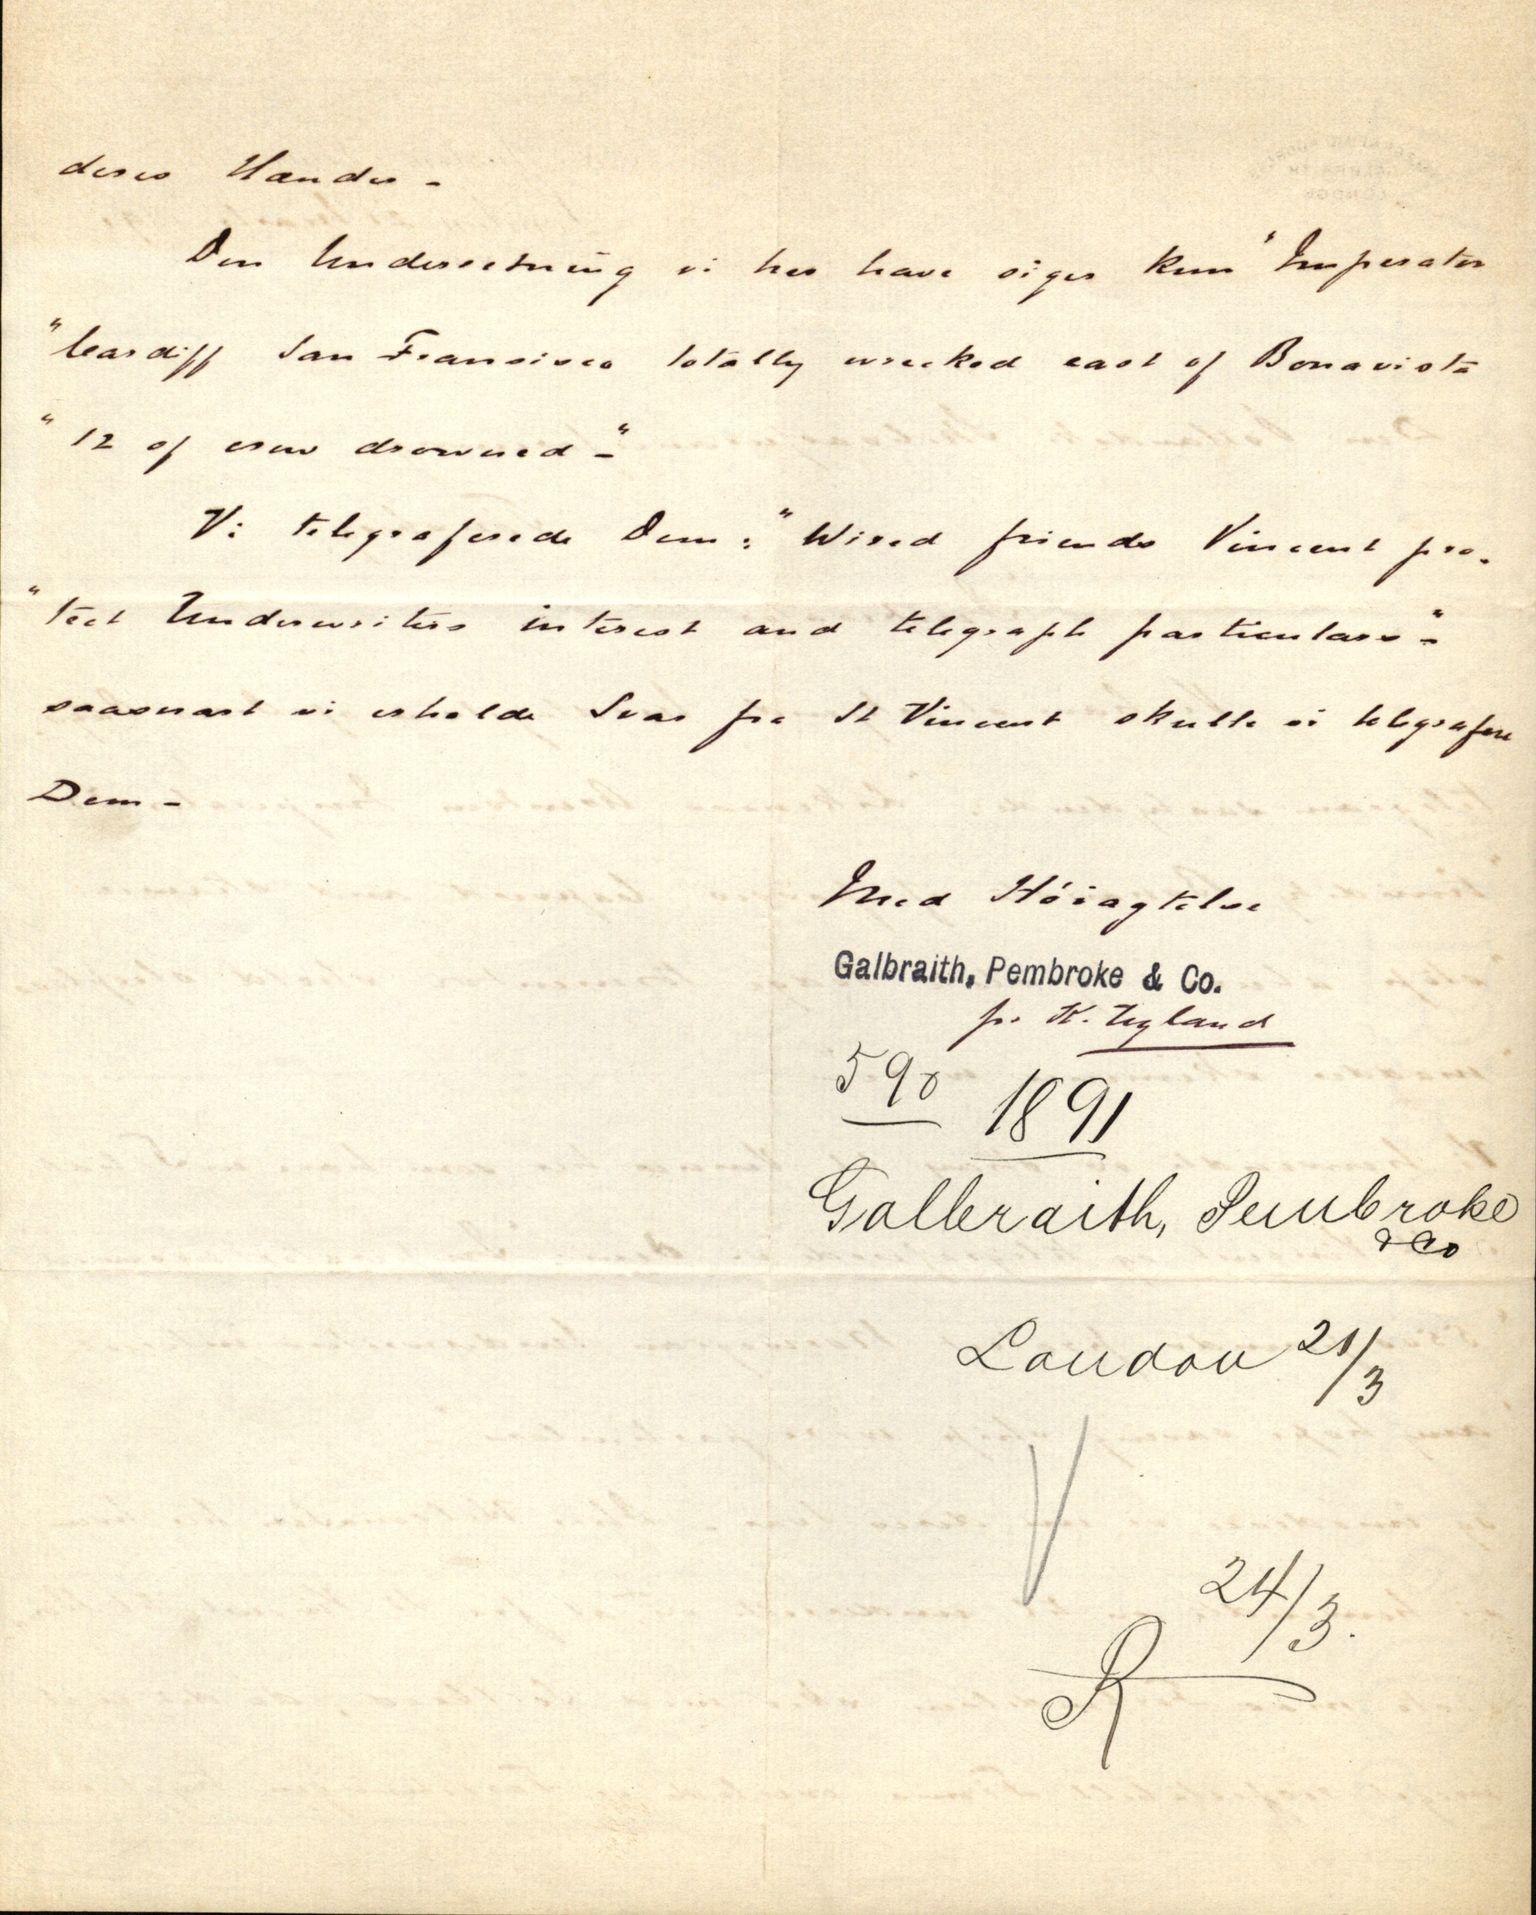 deres Hænder -
Den Underretning vi her have siger kun "Imperator
"Cardiff San Fransisco totally wrecked east of Bonavista
" 12 of crew drowned -"
Vi telegraferede Dem: "Wired friends Vincent pro-
"tect Underwriters interest and telegraph particulars"-
saasnart vi erholde Svar fra St Vincent skulle vi telegrafere
Dem -
Med Høiagtelse
Galbraith, Pembroke & Co.
pr K. Ugland
590
1891
Galbraith, Pembroke
& Co
London 21/3
24/3.
R